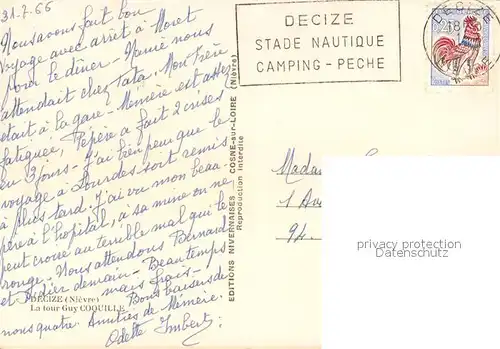 31.7.66
Nous avons fait bon
voyage avec arrêt à Moret
pour le dîner - Mamie nous
attendait chez Tata. Mon frère
était à la gare - Mémère est assez
fatiguée, Pépère a fait 2 crises
en 3 jours - J'ai bien peur que le
voyage à Lourdes soit remis
à plus tard. J'ai vu mon beau-
père à l'hôpital, à sa mine on ne
peut croire au terrible mal qui le
ronge. Nous attendons Bernard
et Didier demain - Beau temps
mais frais -
Bons baisers de
nous quatre. Amitiés de Mémère.
Odette Imbert
DECIZE (Nièvre)
La tour Guy COQUILLE
EDITIONS NIVERNAISES COSNE-sur-LOIRE (Nièvre)
Reproduction interdite
DECIZE
STADE NAUTIQUE
CAMPING - PECHE
DECIZE
18
Madame
1 Av
94.
privacy protection
Datenschutz